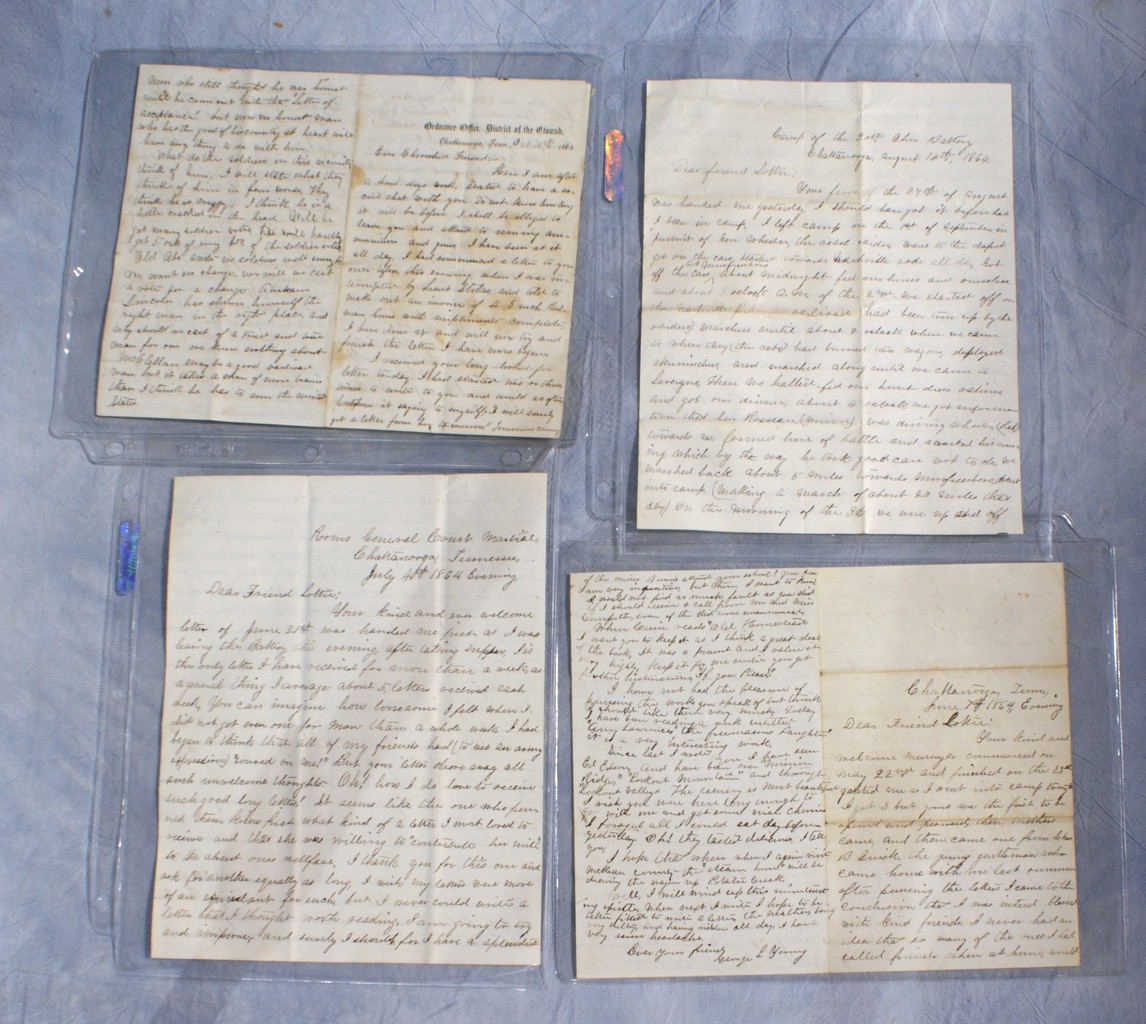 men who still thought he was honest
until he came out with the "Letter of
acceptance" but now no honest man
who has the good of his country at heart will
have any thing to do with him.
What do the soldiers in this vicinity
think of him, I will state what they
think of him in four words. They
think he is crazy. I think he is a
little cracked in the head. Will he
get many soldier votes, He will hardly
get 5 out of every 100 of the soldier votes
"Old Abe" suits us soldiers well enough
We want no change, nor will we cast
a vote for a change. Abraham
Lincoln has shown himself the
right man in the right place and
why should we cast of a tried and true
man for one we know nothing about
McClellan may be a good
man but it takes a man of more brains
than I think he has to run the United
States
Ordnance Office, District of the Etowah,
Chattanooga, Tenn, 186
Ever Cherished Friend
Here I am after
a hard days work, seated to have a so-
cial chat with you. do not know how long
it will be before I shall be obliged to
leave you and attend to issuing am-
munition and guns. I have been at it
all day. I had commenced a letter to you
once before this evening when I was in-
terrupted by Lieut and told to
make out an invoice of 4, 3 inch Rod-
man Guns with implements complete,
I have done it and will now try and
finish the letter I have now begun
I received your long-looked for
letter to-day. I had started two or three
times to write to you and would as often
it saying to myself, I will surely
get a letter from her tomorrow" Tomorrow came
Camp of the 20th Ohio Battery
Chattanooga, August 18th, 1864
Dear friend Lottie:
Your favor of the 27th of August
was handed me yesterday I should have got it before had
I been in camp, I left camp on the 1st of September in
pursuit of Gen Wheeler, the rebel raider, went to the depot
got on the cars, started towards Nashville rode all day. Got
off the cars at Murfreesboro about Midnight, fed our horses and ourselves
and about 3 oclock A.M. of the 2nd we started off on
the Nashville pike (railroad had been torn up by the
raiders) Marched until about 8 oclock when we came
to where they (the rebs) had burned two wagons, deployed
skirmishers, and marched along until we came to
Lavergne, There we halted, fed our horses
and got our dinner, about 4 oclock we got informa-
tion that Gen Rosseau (Union) was driving Wheeler (Reb)
towards us, formed line of battle and awaited his com-
ing which by the way he took good care not to do. We
marched back about 5 miles towards Murfreesboro, went
into camp, (making a march of about 20 miles that
day) On the morning of the 3d we were up and off
Rooms General Court Martial
Chattanooga, Tennessee,
July 4th 1864 Evening
Dear Friend Lottie:
Your kind and ever welcome
letter of June 21st was handed me just as I was
leaving the Battery this evening after eating supper. Tis
the only letter I have received for more than a week, as
a general thing I average about 5 letters received each
week, You can imagine how lonesome I felt when I
did not get even one for more than a whole week. I had
began to think that all of my friends had (to use an army
expression) "soured on me!" But your letter drove away all
such unwelcome thoughts. Oh! how I do love to receive
such good long letters! It seems like the one who pen-
ned them knew just what kind of a letter I most loved to
receive and that she was willing to contribute her mite
to the absent ones wellfare, I thank you for this one and
ask for another equally as long, I wish my letters were more
of an equivalent for such, but I never could write a
letter that I thought worth reading, I am going to try
and improve, and surely I should, for I have a splendid
of the music attend your school? You see
I am very inquisitive, but then I want to know,
I would not find as much fault as you did
if I should receive a call from him and Miss
Cornfutte, even if they did come unannounced.
When Lessie reads "Old Homestead
I want you to keep it as I think a great deal
of the book, It was a present and I value it
very highly, keep it for me until you get
further instructions, "If you Please".
I have not had the pleasure of
perusing the work you speak of but think
I should like them very much, Today
I have been reading a work entitled
the freemasons Daughter"
it is a very interesting work,
Since last I wrote you I have seen
Ed Edsery and have been over Mission
Ridge," "Lookout Mountain" and through
Lookout Valley. The scenery is most beautiful
I wish you were here long enough to
with me and get some nice cherries
I foraged all I could eat day before
yesterday. Oh! they tasted delicious, I tell
you,
I hope that when when I again visit
McKean County the "steam horse" will be
drawing the wagon up Potato Creek.
Well, I will wind up this uninterest-
ing epistle. When next I write I hope to be
better fitted to write a letter, the weather being
very sultry, and having ridden all day I have
very severe headache.
Ever your friend,
George L Young
Chattanooga, Tenn,
June 7th 1864, Evening
Dear Friend Lottie:
Your kind and
welcome messenger commenced on
May 22nd and finished on the 25th
greeted me as I went into camp tonight
I got 3 but yours was the first to be
opened and perused, then another
came, and then came one from
B Smith the young gentleman who
came home with me last summer
after perusing the letters I came to the
conclusion that I was indeed blessed
with kind friends. I never had an
idea that so many of the ones I had
called friends when at home, would